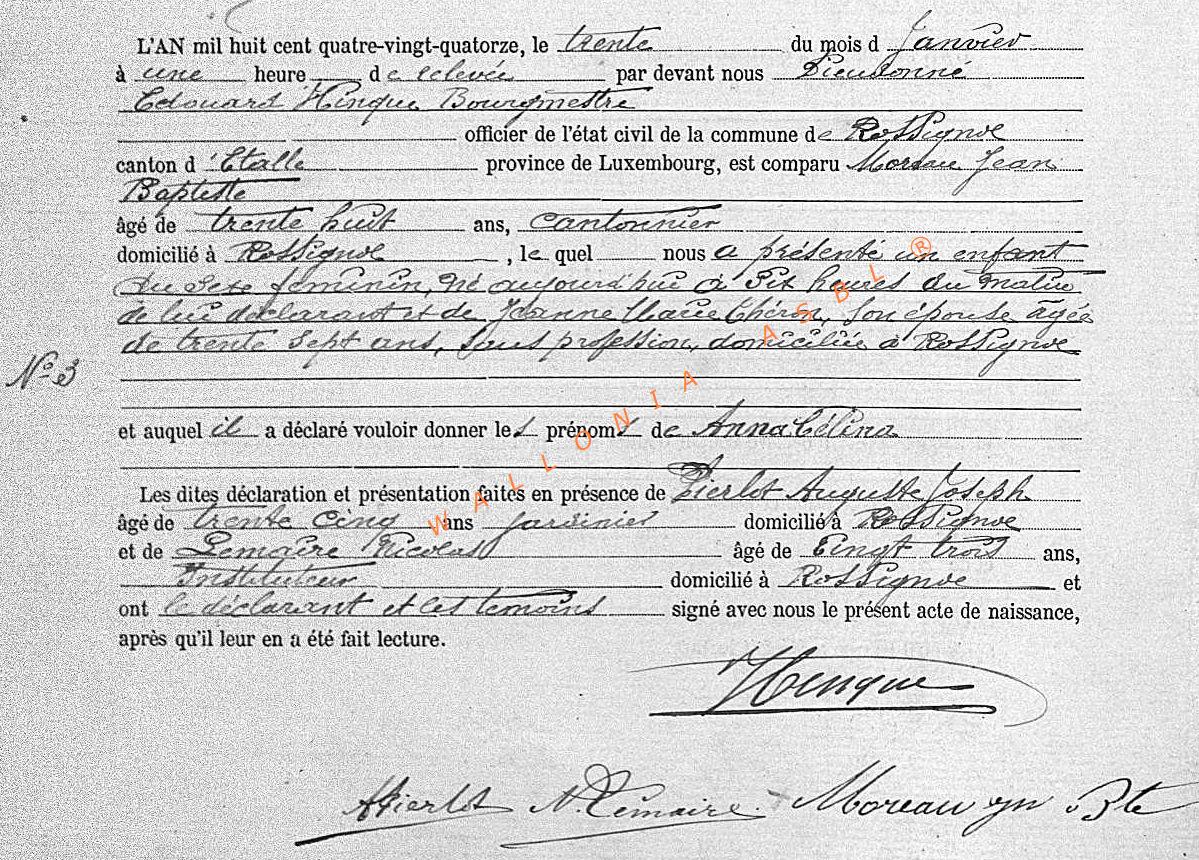 L'AN mil huit cent quatre-vingt-quatorze, le trente du mois d Janvier
à une heure de relevée par devant nous Dieudonné
Edouard Hinque Bourgmestre
officier de l'état civil de la commune de Rossignol
canton d'Etalle province de Luxembourg, est comparu Moreau Jean
Baptiste
âgé de trente huit ans, cantonnier
domicilié à Rossignol, le quel nous a présenté un enfant
du sexe féminin, né aujourd'hui à six heures du matin
de lui déclarant et de Jeanne Marie Chéron, son épouse âgée
de trente sept ans, sans profession, domiciliée à Rossignol
N° 3
et auquel il a déclaré vouloir donner les prénoms de Anna Célina
Les dites déclaration et présentation faites en présence de Pierlot Auguste Joseph
âgé de trente cinq ans jardinier domicilié à Rossignol
et de Lemaire Nicolas âgé de vingt trois ans,
Instituteur domicilié à Rossignol et
ont le déclarant et les témoins signé avec nous le présent acte de naissance,
après qu'il leur en a été fait lecture.
WALLONIA ASBL ®
Hinque
A Pierlot N. Lemaire Moreau Bte